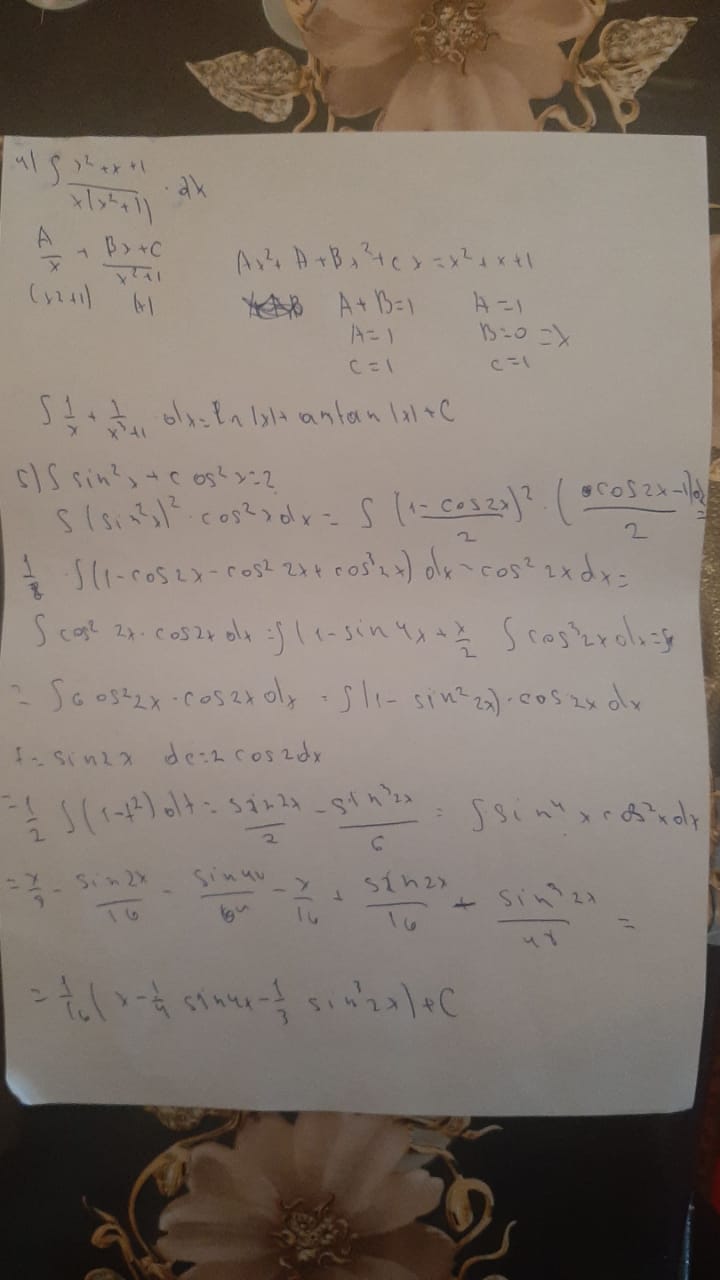 4) ∫ x²+x+1 / x(x²+1) · dx
A/x + Bx+C / x²+1
(x2+1) (x)
Ax²+A+Bx²+cx=x²+x+1
A+B=1 A=1
A=1 B=0 =>
C=1 C=1
∫ 1/x + 1/x²+1 dx=ln|x|+antan|x|+C
5) ∫ sin²x+cos²x=2
∫(sin²x)²·cos²xdx = ∫ (1-cos2x)²/2 · (cos2x-1)/2
1/8 ∫(1-cos2x-cos²2x+cos³2x)dx-cos²2xdx=
∫cos²2x·cos2xdx=∫(1-sin4x+x/2 ∫cos³2xdx=∫
= ∫cos²2x·cos2xdx = ∫(1-sin²2x)·cos2xdx
t=sin2x dt=2cos2dx
=1/2 ∫(1-t²)dt= sin2x/2 - sin³2x/6 = ∫sin⁴xcos²xdx
- sin2x/16 - - x/16 + sin2x/16 + sin³2x/48 =
=1/16(x-1/4 sin4x-1/3 sin³2x)+C